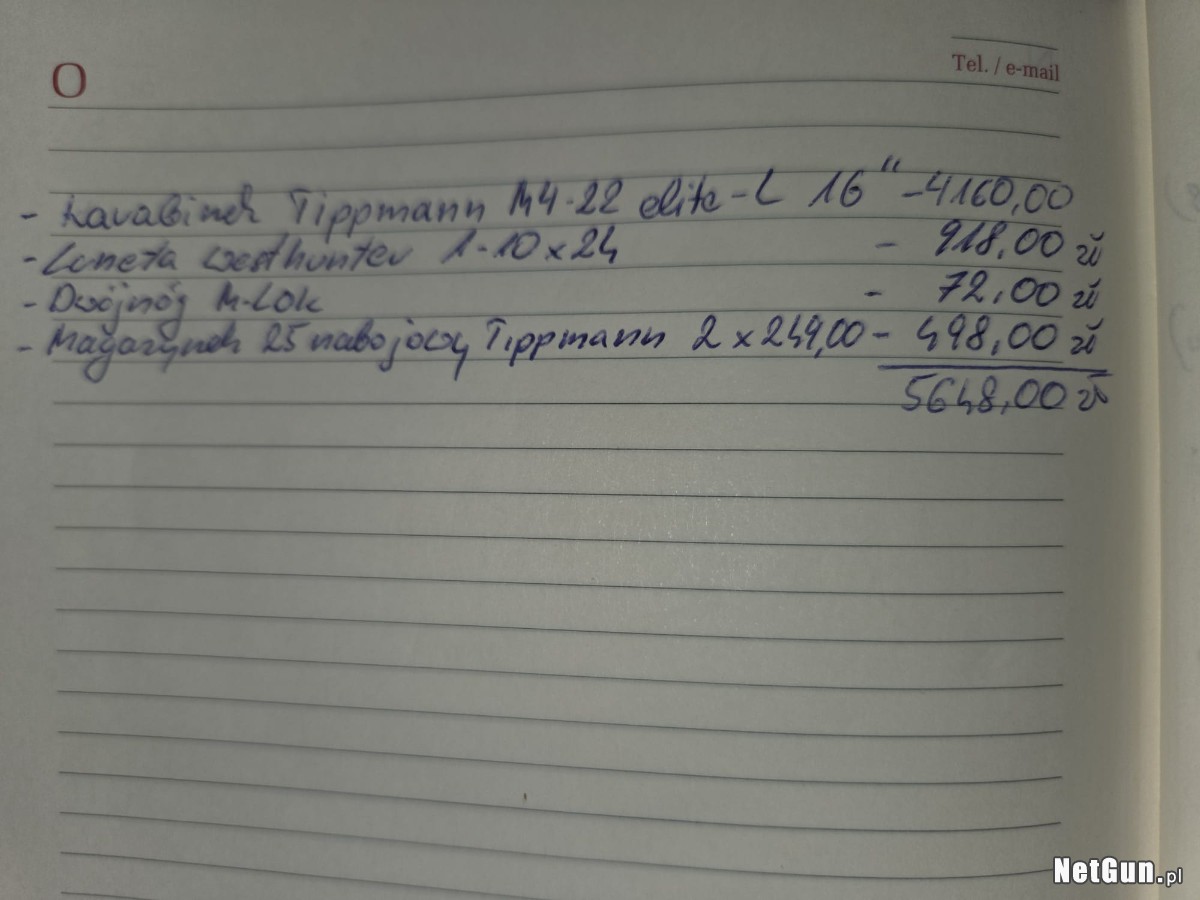 O
Tel. / e-mail
- karabinek Tippmann M4-22 elite-L 16" - 4160,00
- Luneta westhunter 1-10x24 - 918,00 zł
- Dwójnóg M-Lok - 72,00 zł
- Magazynek 25 nabojowy Tippmann 2 x 249,00 - 498,00 zł
5648,00 zł
NetGun.pl